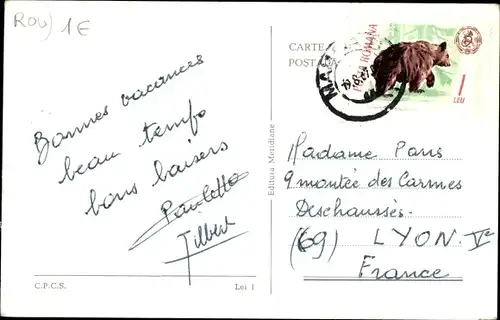 ROU) 1€
CARTE
POSTALA
POSTA ROMANA
1
LEU
Bonnes vacances
beau temps
bons baisers
Paulette
Gilbert
Editura Meridiane
Madame Paris
9 montée des Carmes
Deschaussés.
(69) LYON. Ve
France
C.P.C.S.
Lei 1